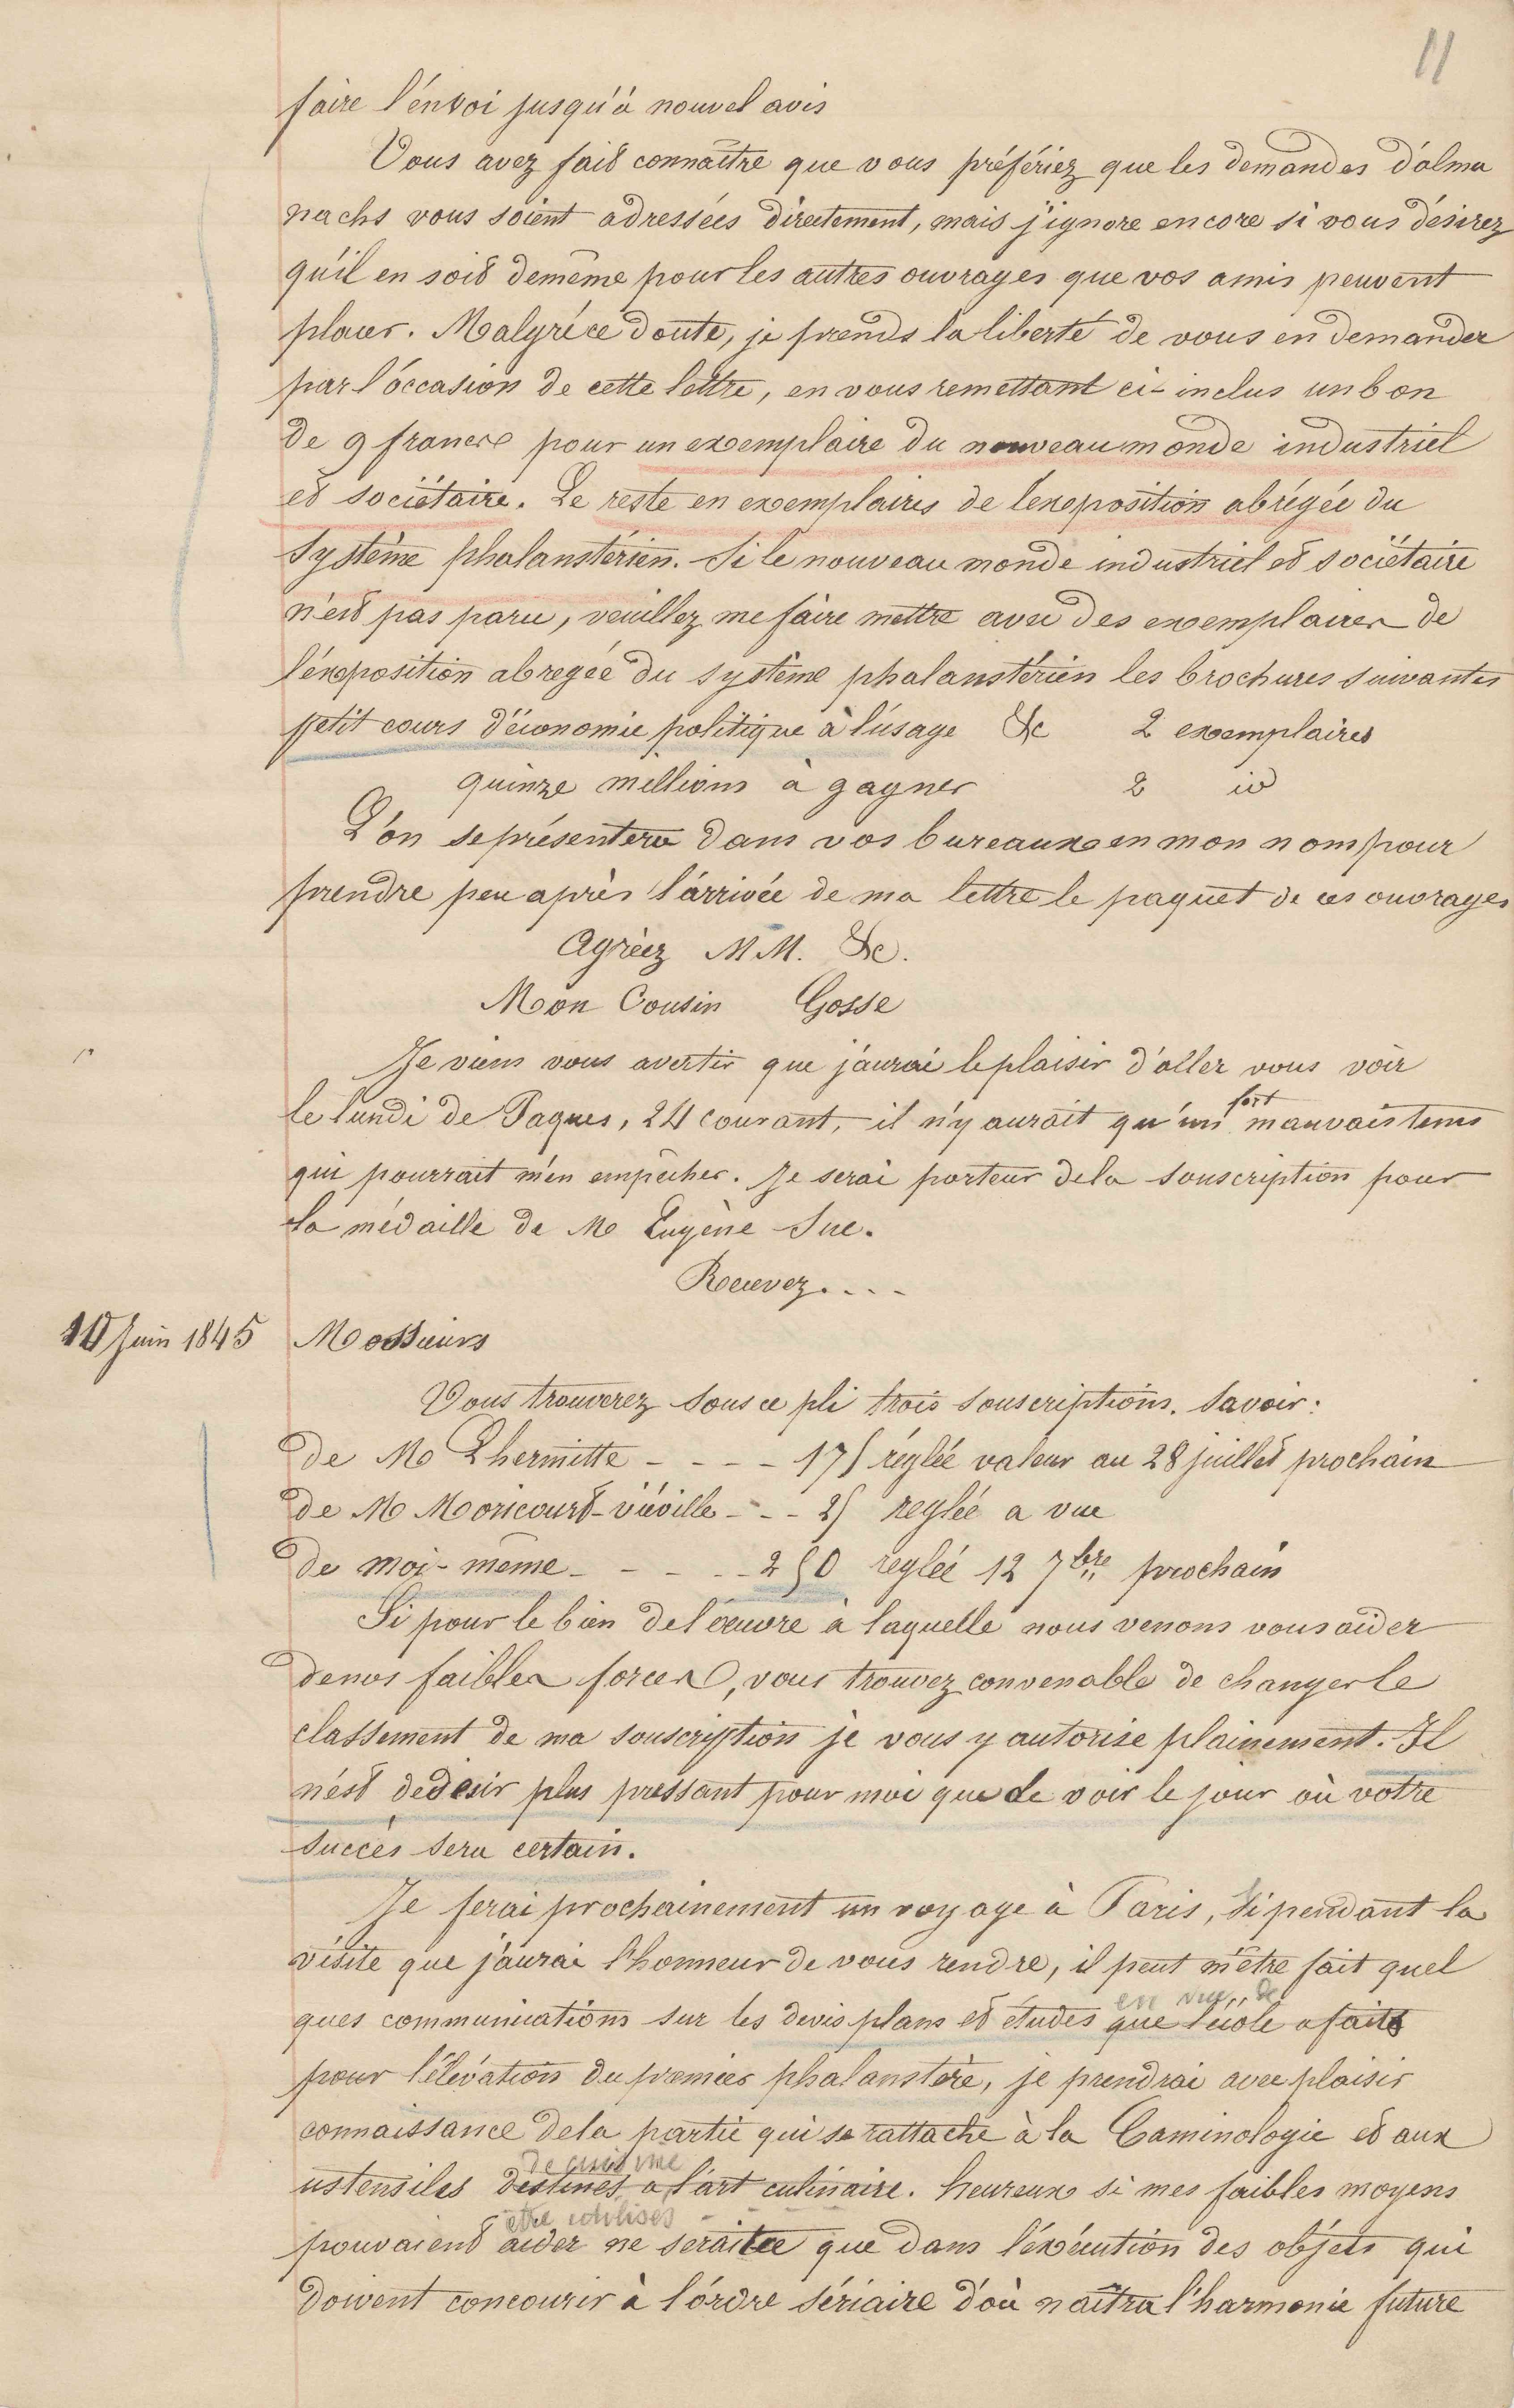 11
faire l'envoi jusqu'à nouvel avis
Vous avez fait connaître que vous préfériez que les demandes d'alma
nachs vous soient adressées directement, mais j'ignore encore si vous désirez
qu'il en soit demême pour les autres ouvrages que vos amis peuvent
placer. Malgré ce doute, je prends la liberté de vous en demander
par l'occasion de cette lettre, en vous remettant ci-inclus un bon
de 9 francs pour un exemplaire du nouveau monde industriel
et sociétaire. Le reste en exemplaires de l'exposition abrégée du
Système phalanstérien. Si le nouveau monde industriel et sociétaire
n'est pas paru, veuillez me faire mettre avec des exemplaires de
l'exposition abregée du système phalanstérien les brochures suivantes
petit cours d'économie politique à l'usage &c 2 exemplaires
quinze millions à gagner 2 id
L'on se présentera dans vos bureaux en mon nom pour
prendre peu après l'arrivée de ma lettre le paquet de ces ouvrages
Agréez MM. &c.
Mon Cousin Gosse
Je viens vous avertir que j'aurai le plaisir d'aller vous voir
fort
le lundi de Paques, 24 courant, il n'y aurait qu'un mauvais tems
qui pourrait m'en empêcher. Je serai porteur de la souscription pour
la médaille de M Eugène Sue.
Recevez....
10 Juin 1845 Messieurs
Vous trouverez sous ce pli trois souscriptions. Savoir:
de M Lhermitte - - - - 175 réglée valeur au 28 juillet prochain
de M Moricourt-viéville - - - 25 reglée a vue
de moi-même - - - - - 250 reglée 12 7bre prochain
Si pour le bien de l'œuvre à laquelle nous venons vous aider
de nos faibles forces, vous trouvez convenable de changer le
classement de ma souscription je vous y autorise plainement. Il
n'est de desir plus pressant pour moi que de voir le jour où votre
succès sera certain.
Je ferai prochainement un voyage à Paris, Si pendant la
visite que j'aurai l'honneur de vous rendre, il peut m'être fait quel
en vue de
ques communications sur les devis plans et études que l'école a faits
pour l'élévation du premier phalanstère, je prendrai avec plaisir
connaissance de la partie qui se rattache à la Caminologie et aux
de cuisine
ustensiles destinés a l'art culinaire. heureux si mes faibles moyens
être utilisés
pouvaient aider ne serait ce que dans l'exécution des objets qui
doivent concourir à l'ordre sériaire d'où naîtra l'harmonie future